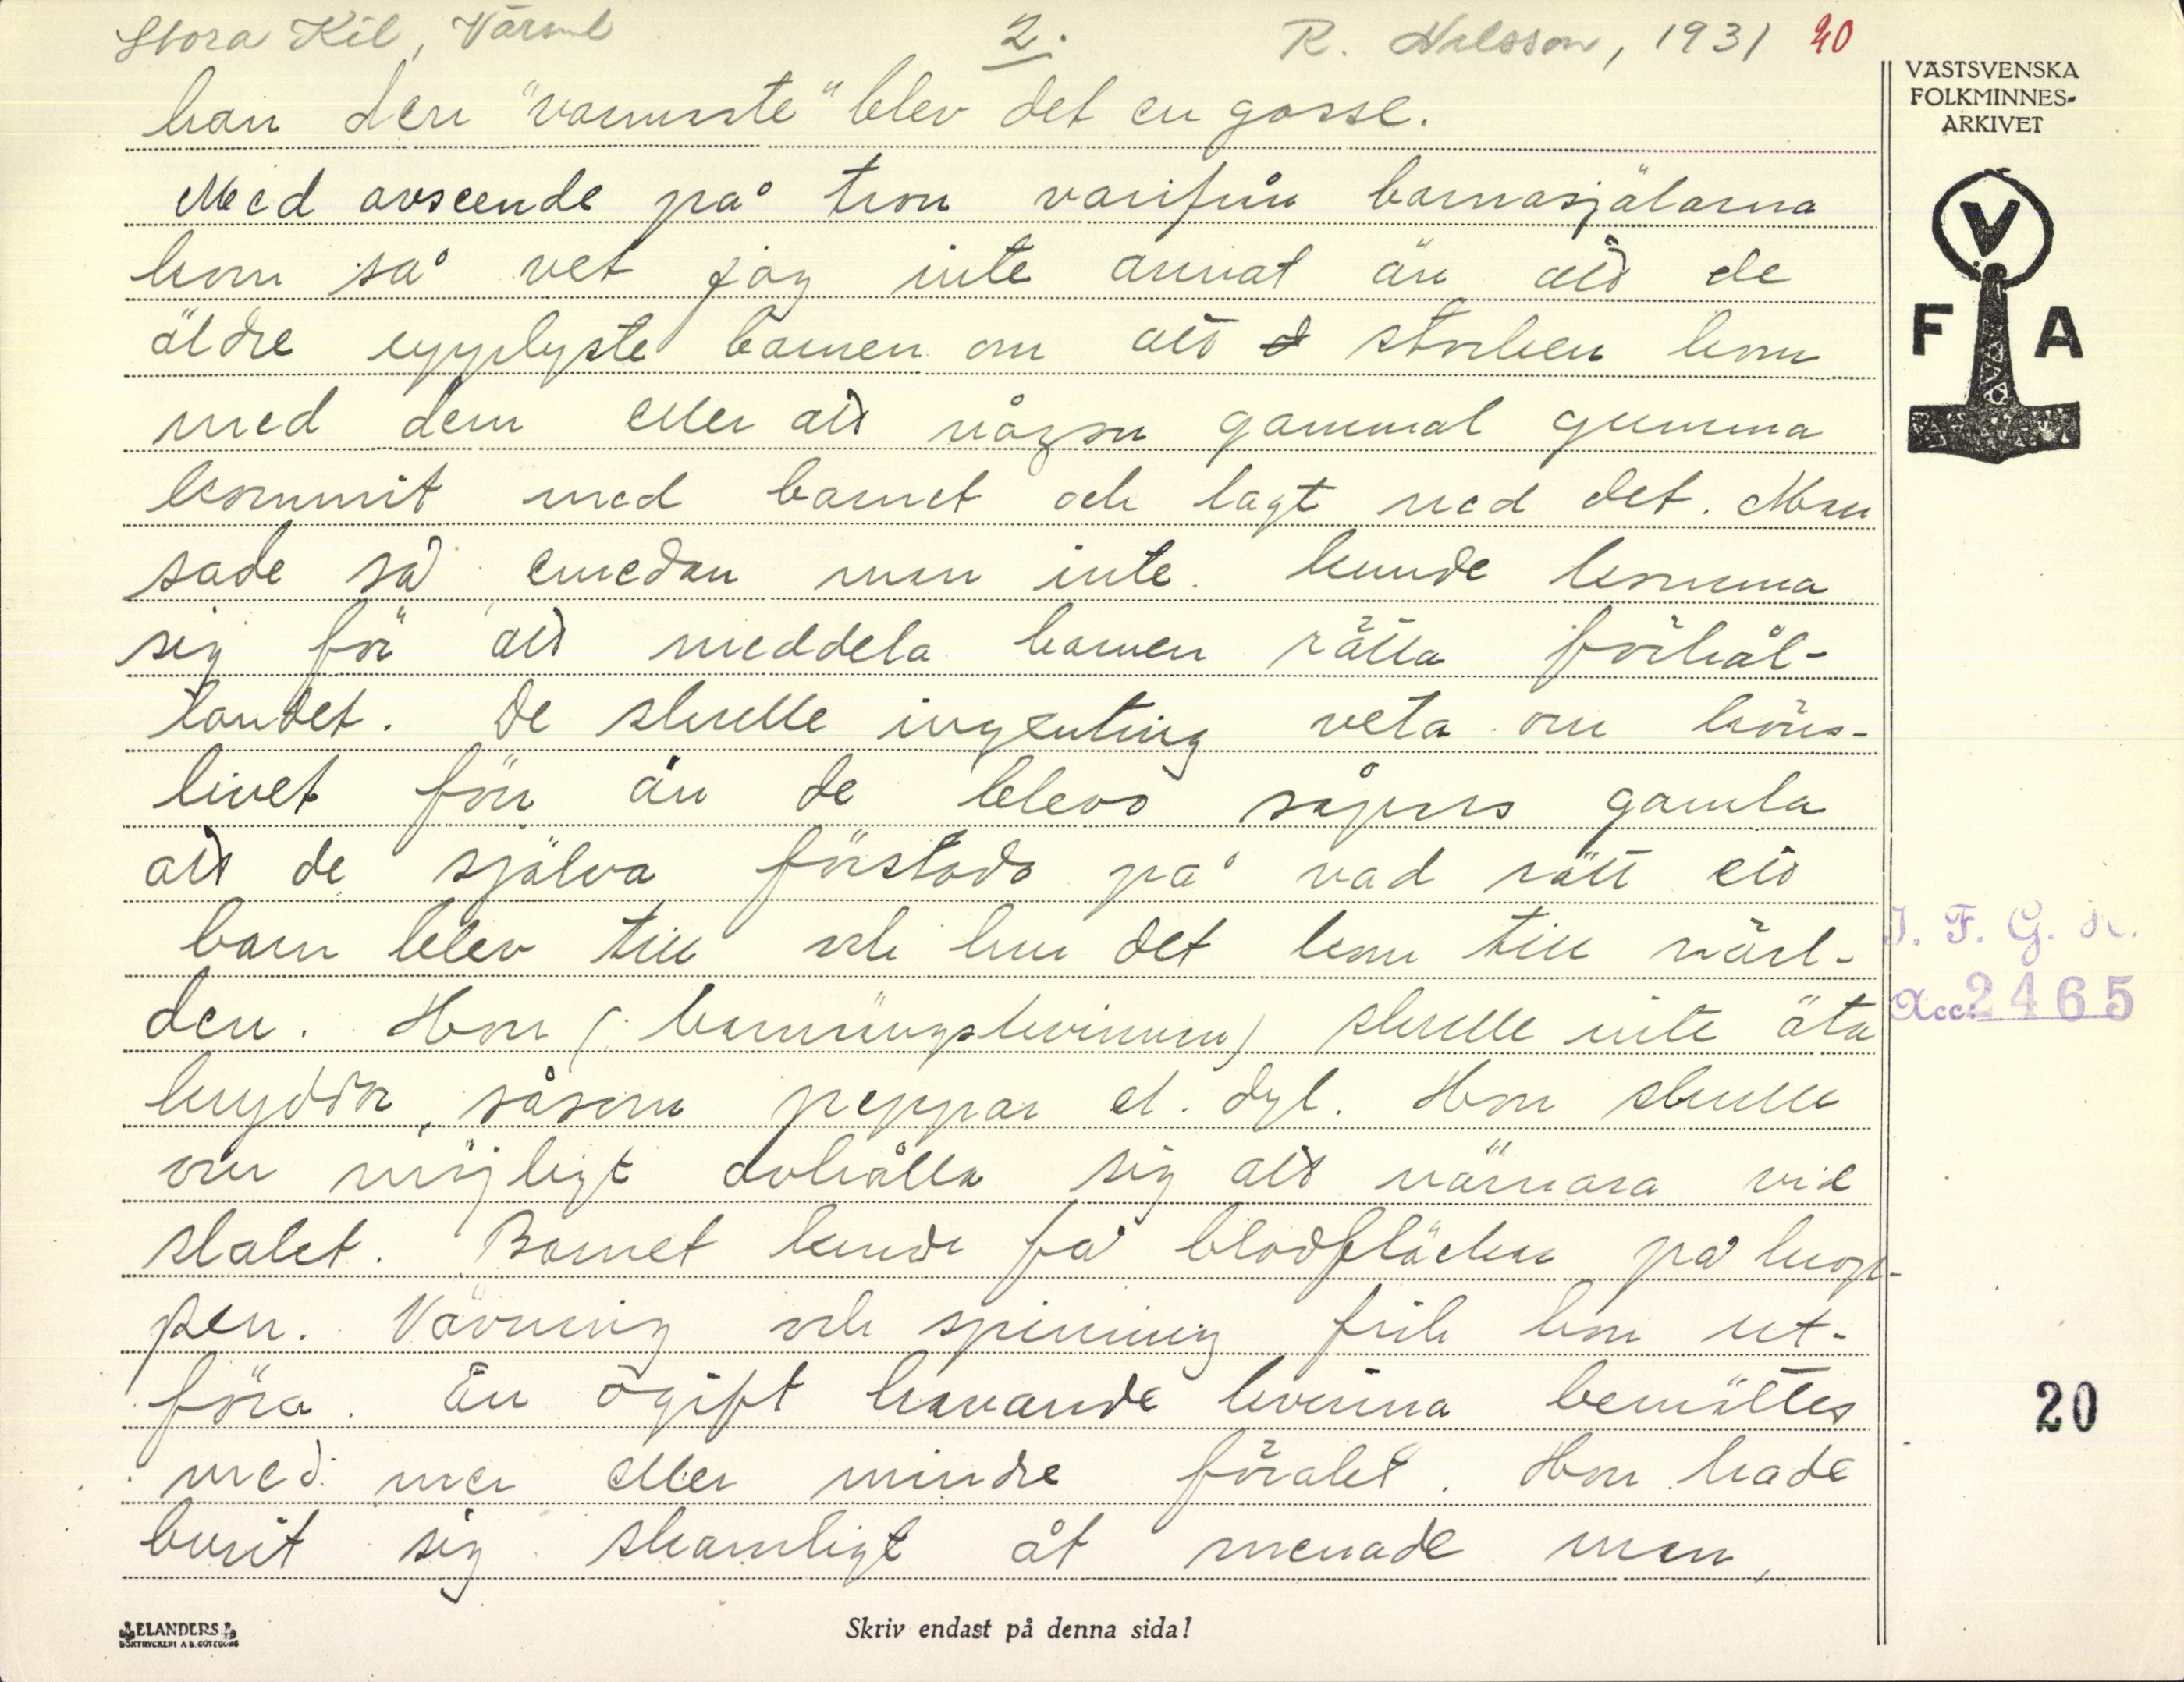 Stora Kil, Värml 2. R. Nilsson, 1931 20
VÄSTSVENSKA
FOLKMINNES-
ARKIVET
V
F A
han den "vämste" blev det en gosse.
Med avseende på tron varifrån barnasjälarna
kom så vet jag inte annat än att de
äldre upplyste barnen om att storken kom
med dem eller att någon gammal gumma
kommit med barnet och lagt ned det. Man
sade så emedan man inte kunde komma
sig för att meddela barnen rätta förhål-
landet. De skulle ingenting veta om köns-
livet förr än de blevo såpass gamla
att de själva förstodo på vad sätt ett
barn blev till och hur det kom till värl-
den. Hon (barnängskvinnan) skulle inte äta
kryddor, såsom peppar el. dyl. Hon skulle
om möjligt avhålla sig att närvara vid
slakt. Barnet kunde få blodfläckar på krop-
pen. Vävning och spinning fick hon ut-
föra. En ogift havande kvinna bemöttes
med mer eller mindre förakt. Hon hade
burit sig skamligt åt menade man,
I. F. G. H.
Acc. 2465
20
ELANDERS
BOKTRYCKERI A.B. GÖTEBORG
Skriv endast på denna sida!